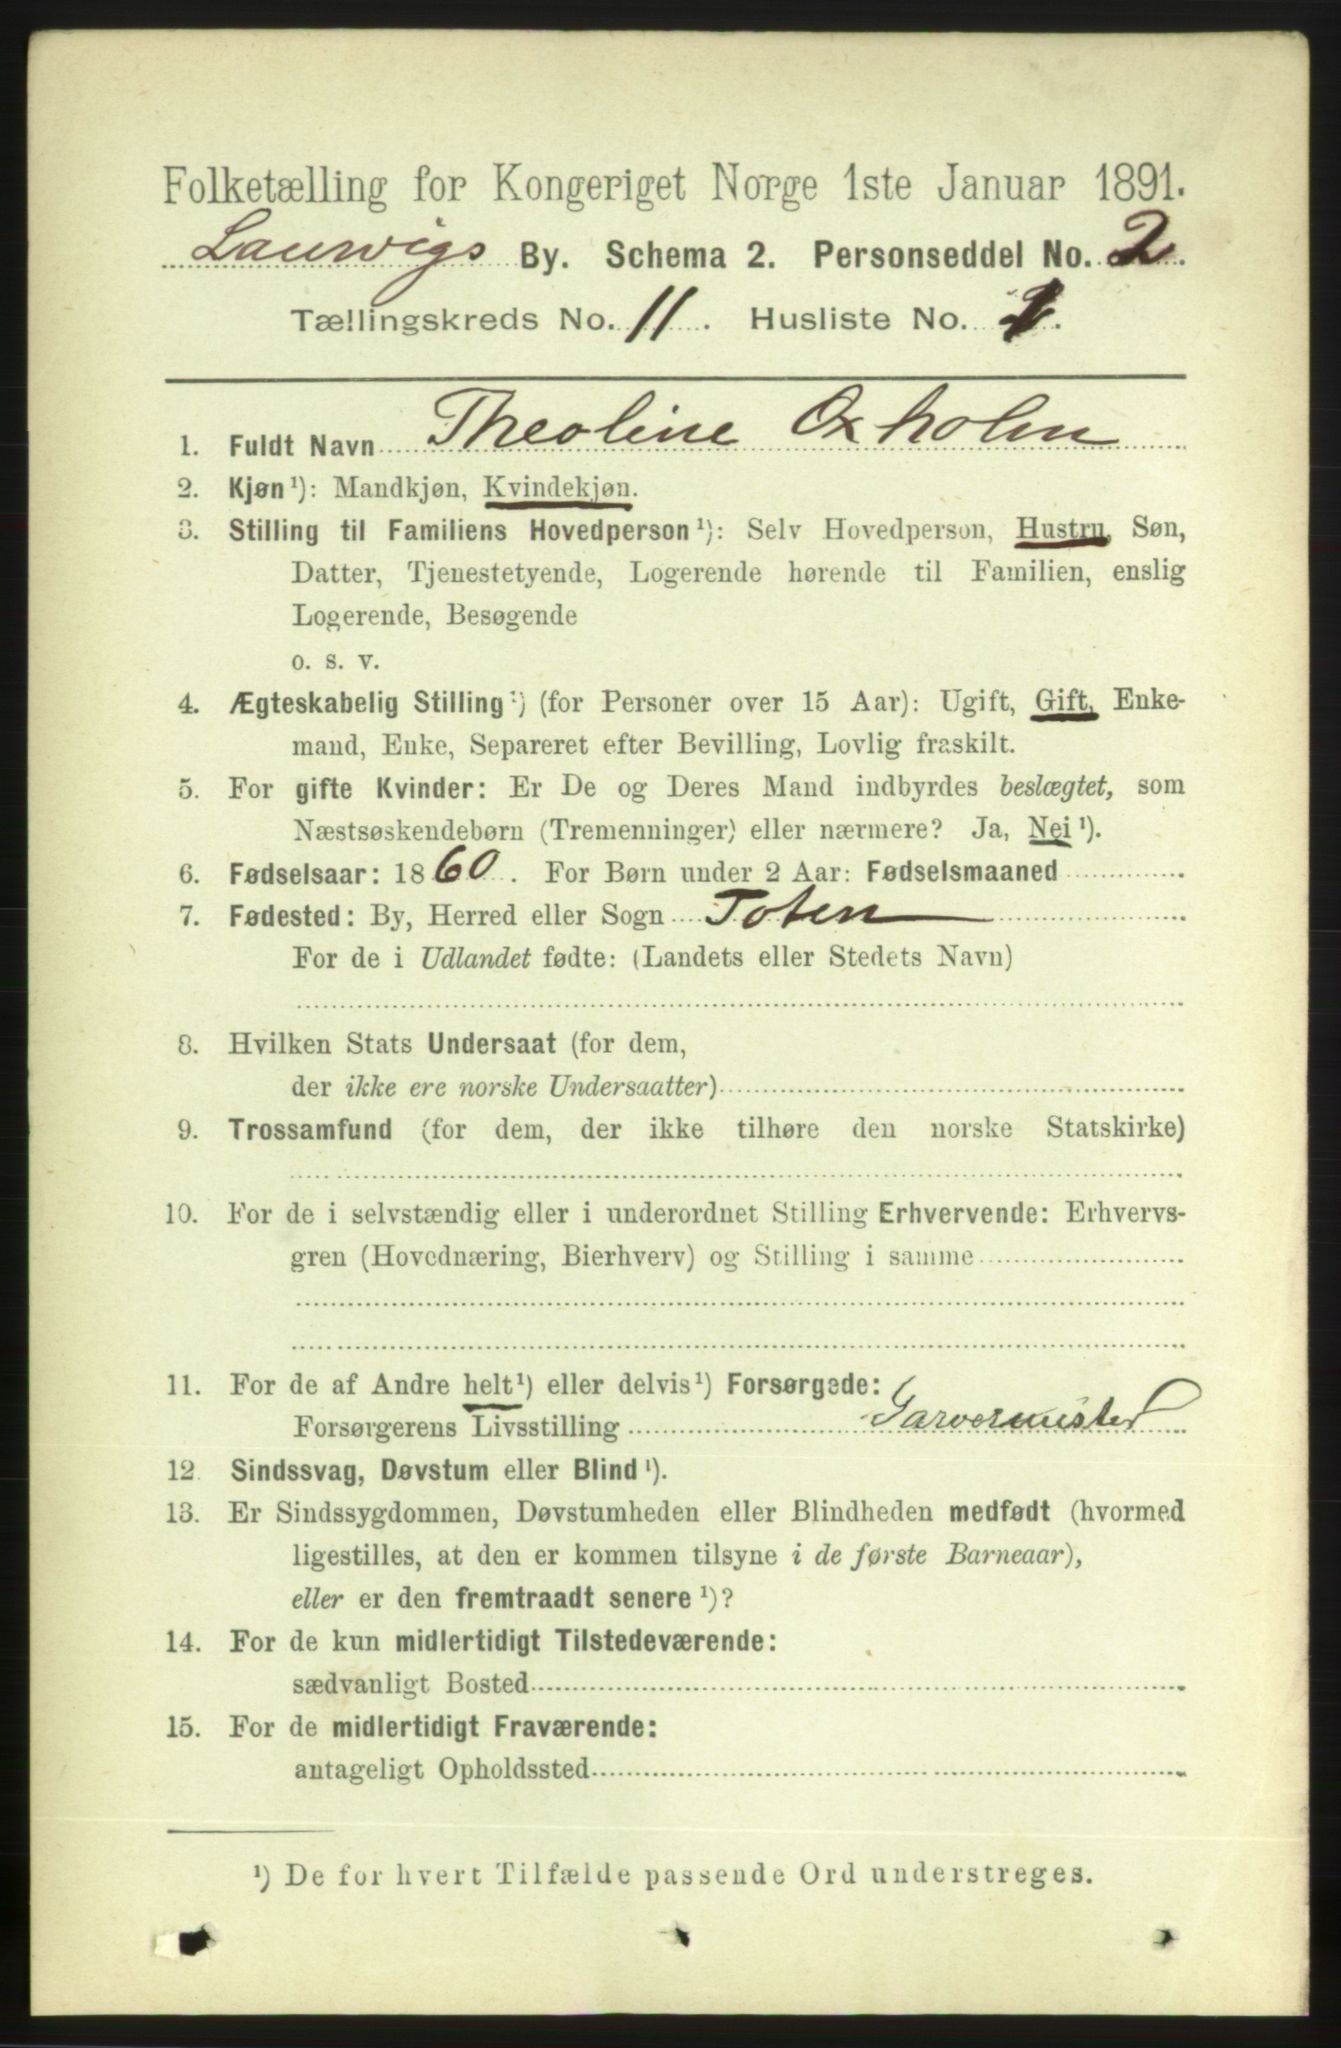 Folketælling for Kongeriget Norge 1ste Januar 1891.
Laurvigs By. Schema 2. Personseddel No. 2.
Tællingskreds No. 11. Husliste No. .
1. Fuldt Navn Theoline Oxholm
2. Kjøn ¹): Mandkjøn, Kvindekjøn.
3. Stilling til Familiens Hovedperson ¹): Selv Hovedperson, Hustru, Søn,
Datter, Tjenestetyende, Logerende hørende til Familien, enslig
Logerende, Besøgende
o. s. v.
4. Ægteskabelig Stilling ¹) (for Personer over 15 Aar): Ugift, Gift, Enke-
mand, Enke, Separeret efter Bevilling, Lovlig fraskilt.
5. For gifte Kvinder: Er De og Deres Mand indbyrdes beslægtet, som
Næstsøskendebørn (Tremenninger) eller nærmere? Ja, Nei ¹).
6. Fødselsaar: 1860. For Børn under 2 Aar: Fødselsmaaned
7. Fødested: By, Herred eller Sogn Toten
For de i Udlandet fødte: (Landets eller Stedets Navn)
8. Hvilken Stats Undersaat (for dem,
der ikke ere norske Undersaatter)
9. Trossamfund (for dem, der ikke tilhøre den norske Statskirke)
10. For de i selvstændig eller i underordnet Stilling Erhvervende: Erhvervs-
gren (Hovednæring, Bierhverv) og Stilling i samme
11. For de af Andre helt ¹) eller delvis ¹) Forsørgede:
Forsørgerens Livsstilling Garvermester
12. Sindssvag, Døvstum eller Blind ¹).
13. Er Sindssygdommen, Døvstumheden eller Blindheden medfødt (hvormed
ligestilles, at den er kommen tilsyne i de første Barneaar),
eller er den fremtraadt senere ¹)?
14. For de kun midlertidigt Tilstedeværende:
sædvanligt Bosted
15. For de midlertidigt Fraværende:
antageligt Opholdssted
¹) De for hvert Tilfælde passende Ord understreges.